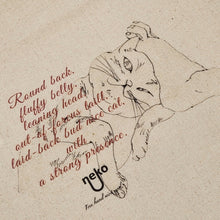 Round back,
fluffy belly,
leaning head,
out-of-focus tail,
laid-back but nice cat,
with
a strong presence.
neko